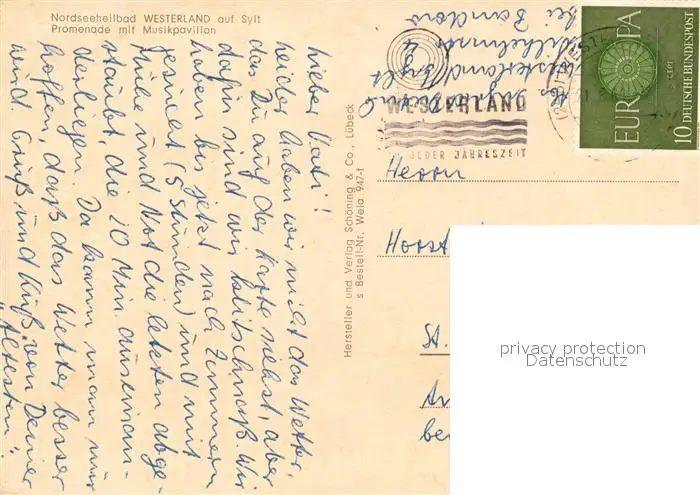 Nordseeheilbad WESTERLAND auf Sylt
Promenade mit Musikpavillon
Lieber Vati!
Leider haben wir nicht das Wetter,
das Du auf der Karte siehst, aber
dafür sind wir klitschnaß. Wir
haben bis jetzt nach Zimmern
gesucht (5 Stunden) und mit
Mühe und Not die letzten abge-
staubt, die 20 Min. auseinan-
derliegen. Da kann man nur
hoffen, daß das Wetter besser
wird. Gruß und Kuß von Deiner
"Ältesten"
Hersteller und Verlag Schöning & Co., Lübeck
s Bestell-Nr. Wela 947-1
Westerland/Sylt
bei
WESTERLAND
JEDER JAHRESZEIT
EUROPA
CEPT
10 DEUTSCHE BUNDESPOST
Herrn
Horst
St.
privacy protection
Datenschutz